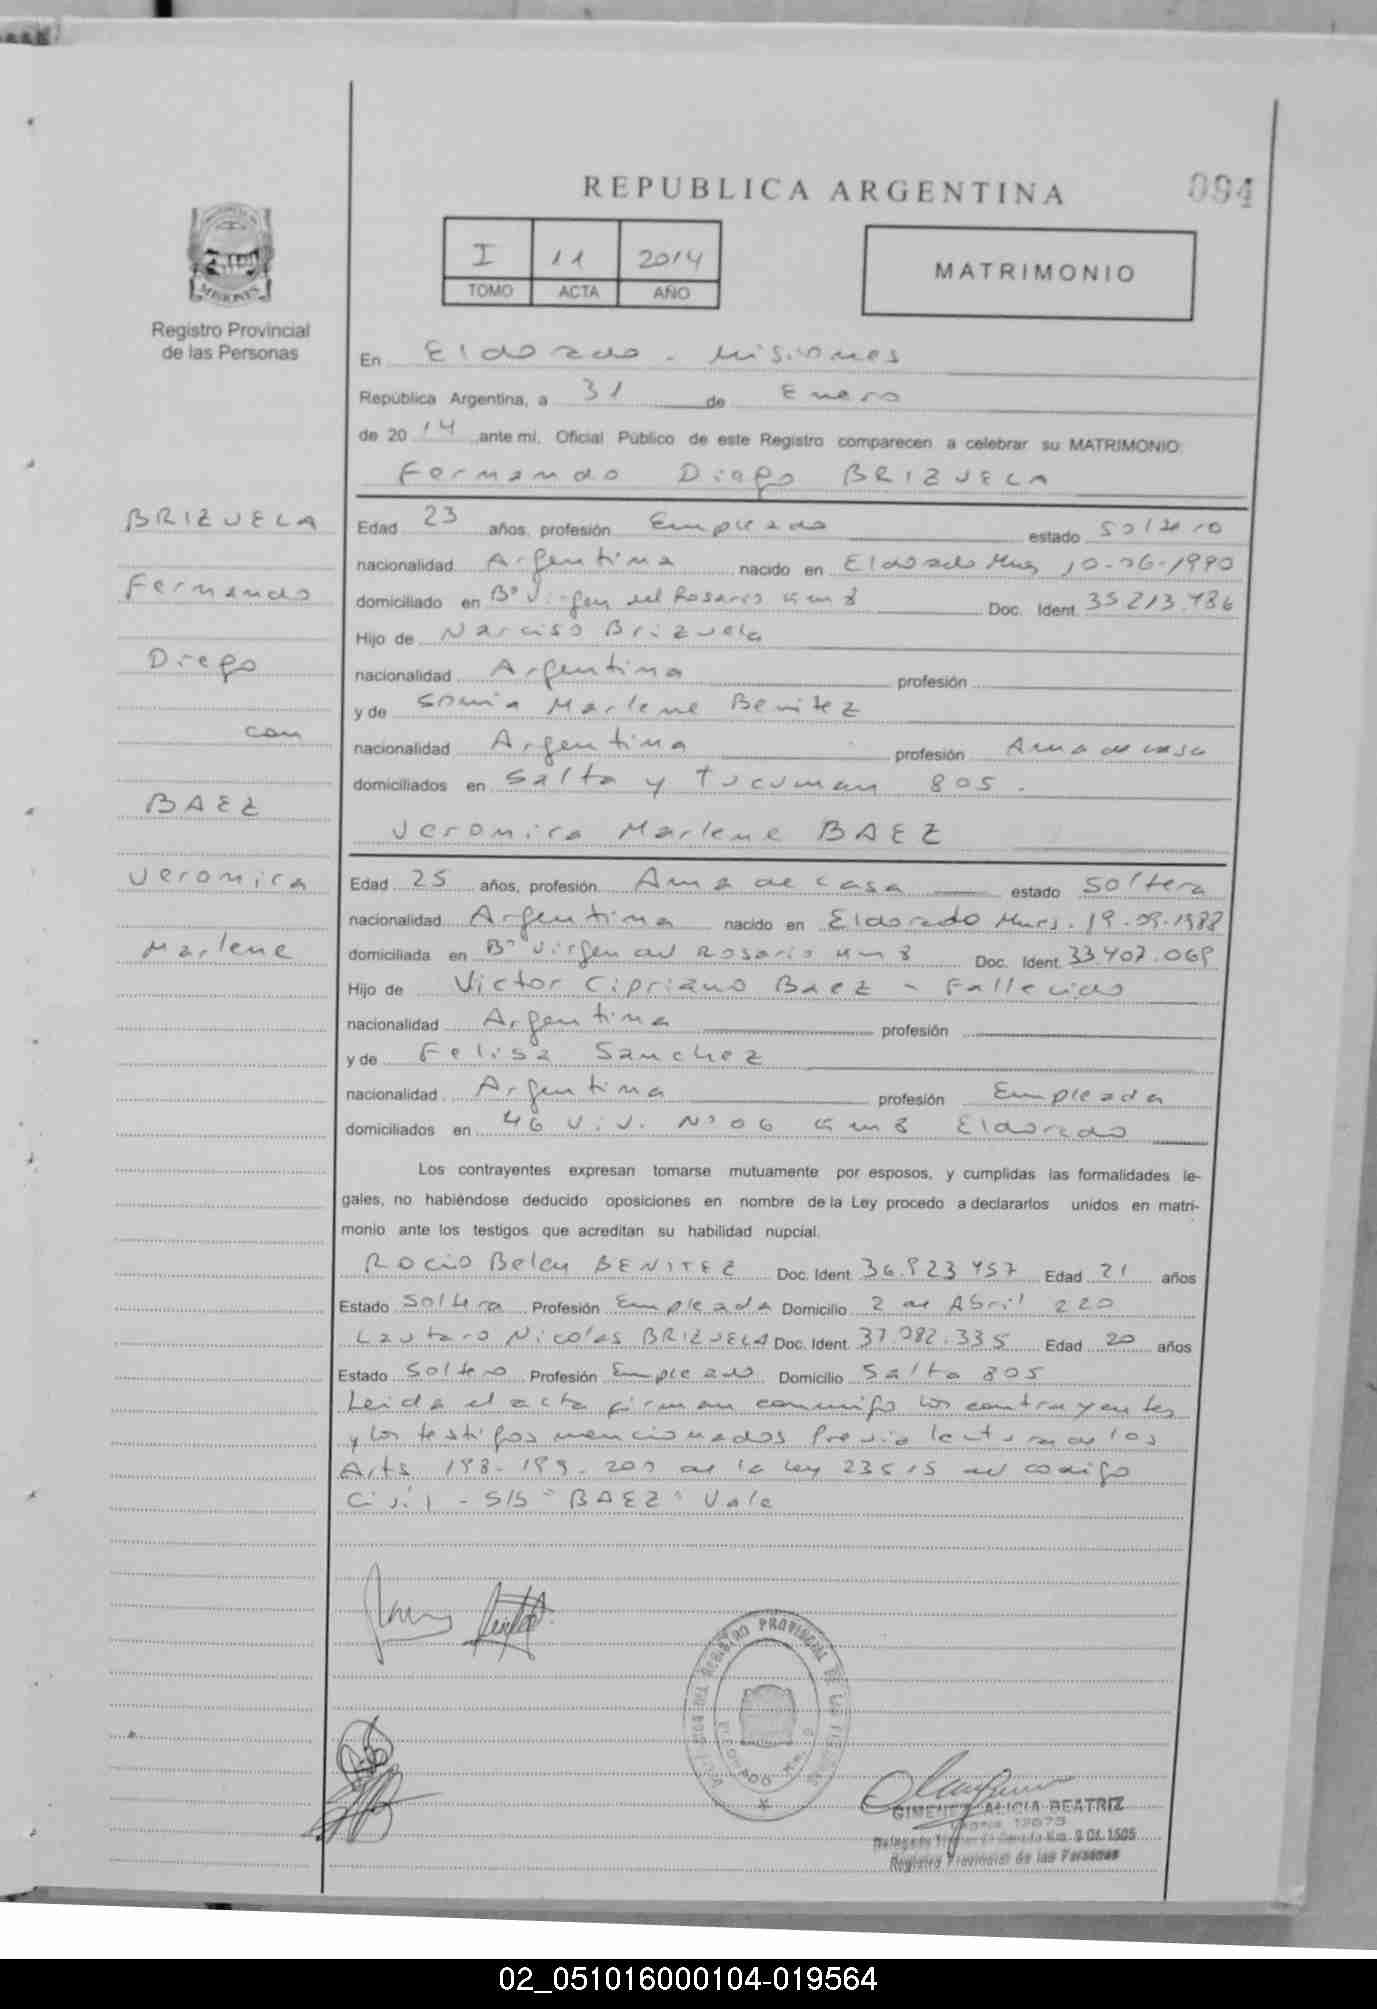 REPUBLICA ARGENTINA
094
I 11 2014
TOMO ACTA AÑO
MATRIMONIO
MISIONES
Registro Provincial
de las Personas
En Eldorado - Misiones
República Argentina, a 31 de Enero
de 2014, ante mi, Oficial Público de este Registro comparecen a celebrar su MATRIMONIO:
Fernando Diego BRIZUELA
BRIZUELA
Fernando
Diego
con
BAEZ
Veronica
Marlene
Edad 23 años, profesión Empleado estado Soltero
nacionalidad Argentina nacido en Eldorado Mnes 10-06-1990
domiciliado en B° Virgen del Rosario Km 8 Doc. Ident. 35.213.486
Hijo de Narciso Brizuela
nacionalidad Argentina profesión
y de Sonia Marlene Benitez
nacionalidad Argentina profesión Ama de casa
domiciliados en Salta y Tucuman 805.
Veronica Marlene BAEZ
Edad 25 años, profesión Ama de casa estado Soltera
nacionalidad Argentina nacido en Eldorado Mnes. 19-09-1988
domiciliada en B° Virgen del Rosario Km 8 Doc. Ident. 33.407.069
Hijo de Victor Cipriano Baez - Fallecido
nacionalidad Argentina profesión
y de Felisa Sanchez
nacionalidad Argentina profesión Empleada
domiciliados en 46 Viv. N° 06 Km 8 Eldorado
Los contrayentes expresan tomarse mutuamente por esposos, y cumplidas las formalidades le-
gales, no habiéndose deducido oposiciones en nombre de la Ley procedo a declararlos unidos en matri-
monio ante los testigos que acreditan su habilidad nupcial.
Rocio Belen BENITEZ Doc. Ident. 36.923.457 Edad 21 años
Estado Soltera Profesión Empleada Domicilio 2 de Abril 220
Lautaro Nicolas BRIZUELA Doc. Ident. 37.082.335 Edad 20 años
Estado Soltero Profesión Empleado Domicilio Salta 805
Leida el acta firman conmigo los contrayentes
y los testigos mencionados previa lectura de los
Arts 198-199-200 de la ley 23515 del codigo
Civil - S/S "BAEZ" Vale
REGISTRO PROVINCIAL DE LAS PERSONAS
ELDORADO
GIMENEZ ALICIA BEATRIZ
Registro Provincial de las Personas
02_051016000104-019564